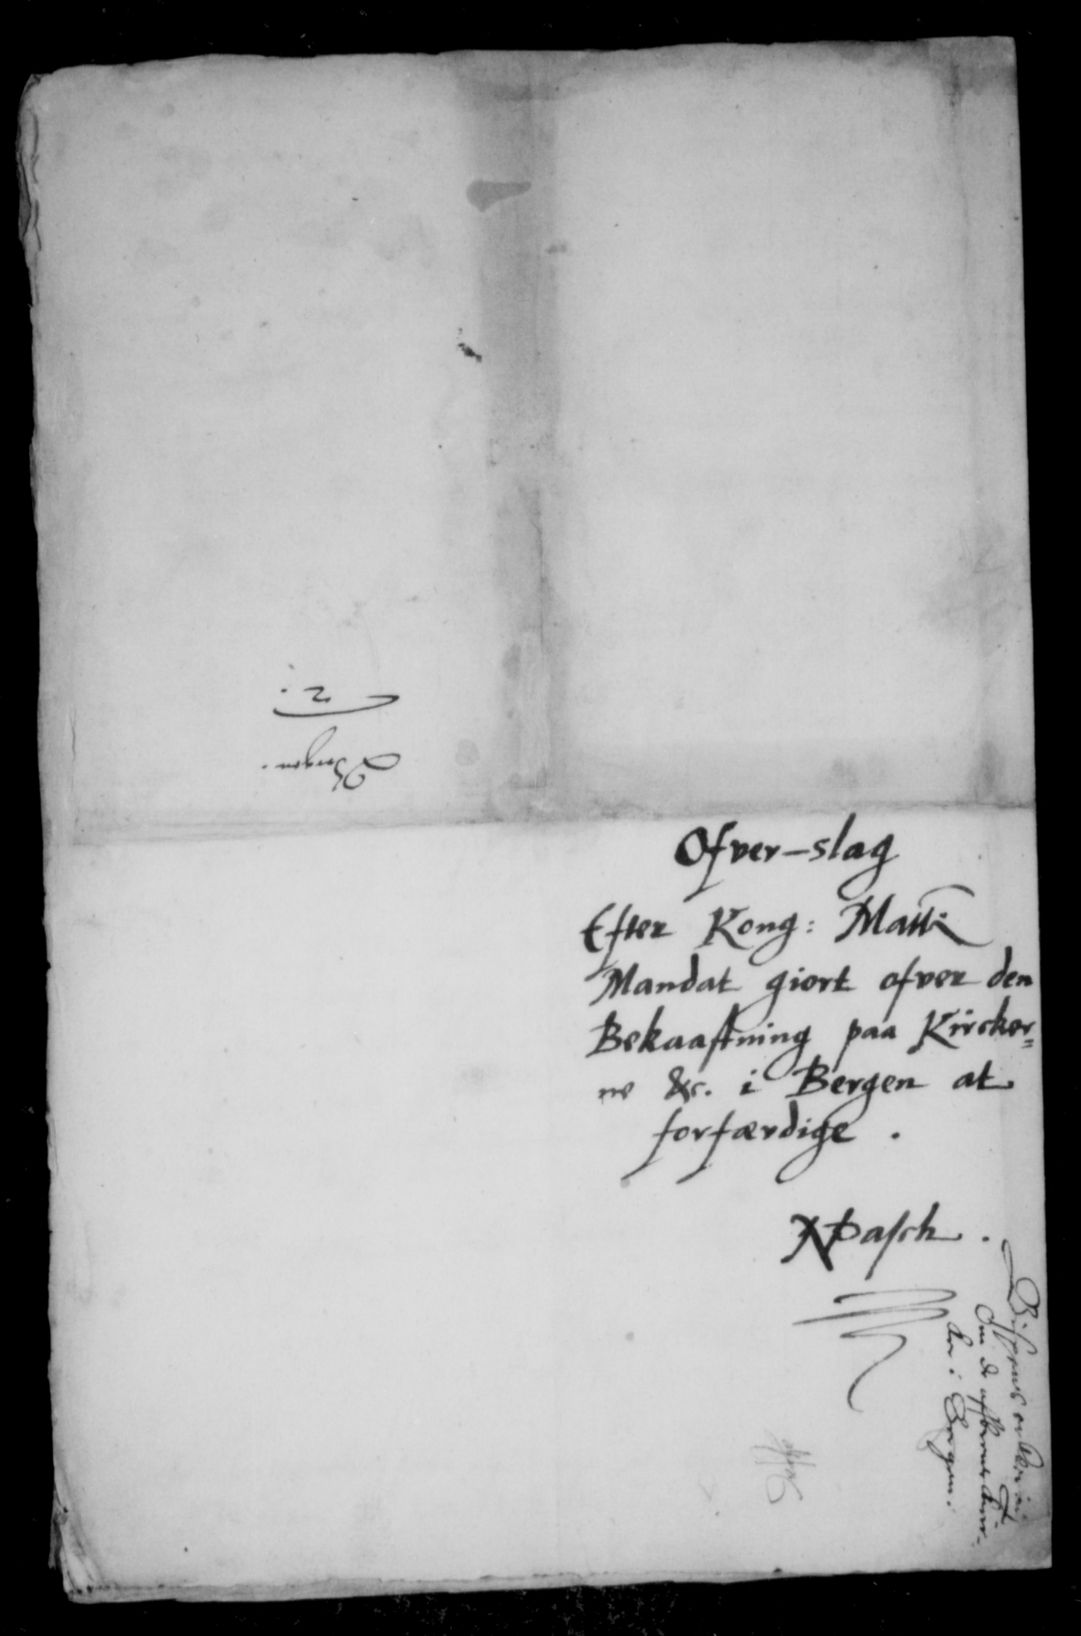 2.
Bergen.
Ofver-slag
Efter Kong: Matt:
Mandat giort ofver den
Bekaastning paa Kircker=
ne &c. i Bergen at
forfærdige.
NPasch.
Bispens
Om de afbrente Kirc-
ker i Bergen.